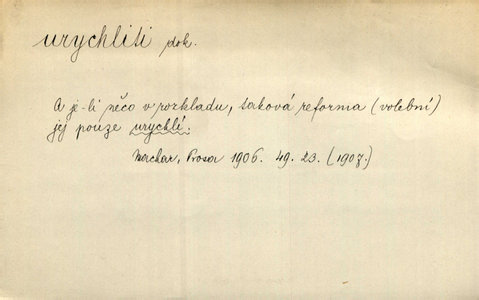 urychliti dok.
A je-li něco v rozkladu, taková reforma (volební)
jej pouze urychlí.
Machar, Prosa 1906. 49. 23. (1907.)